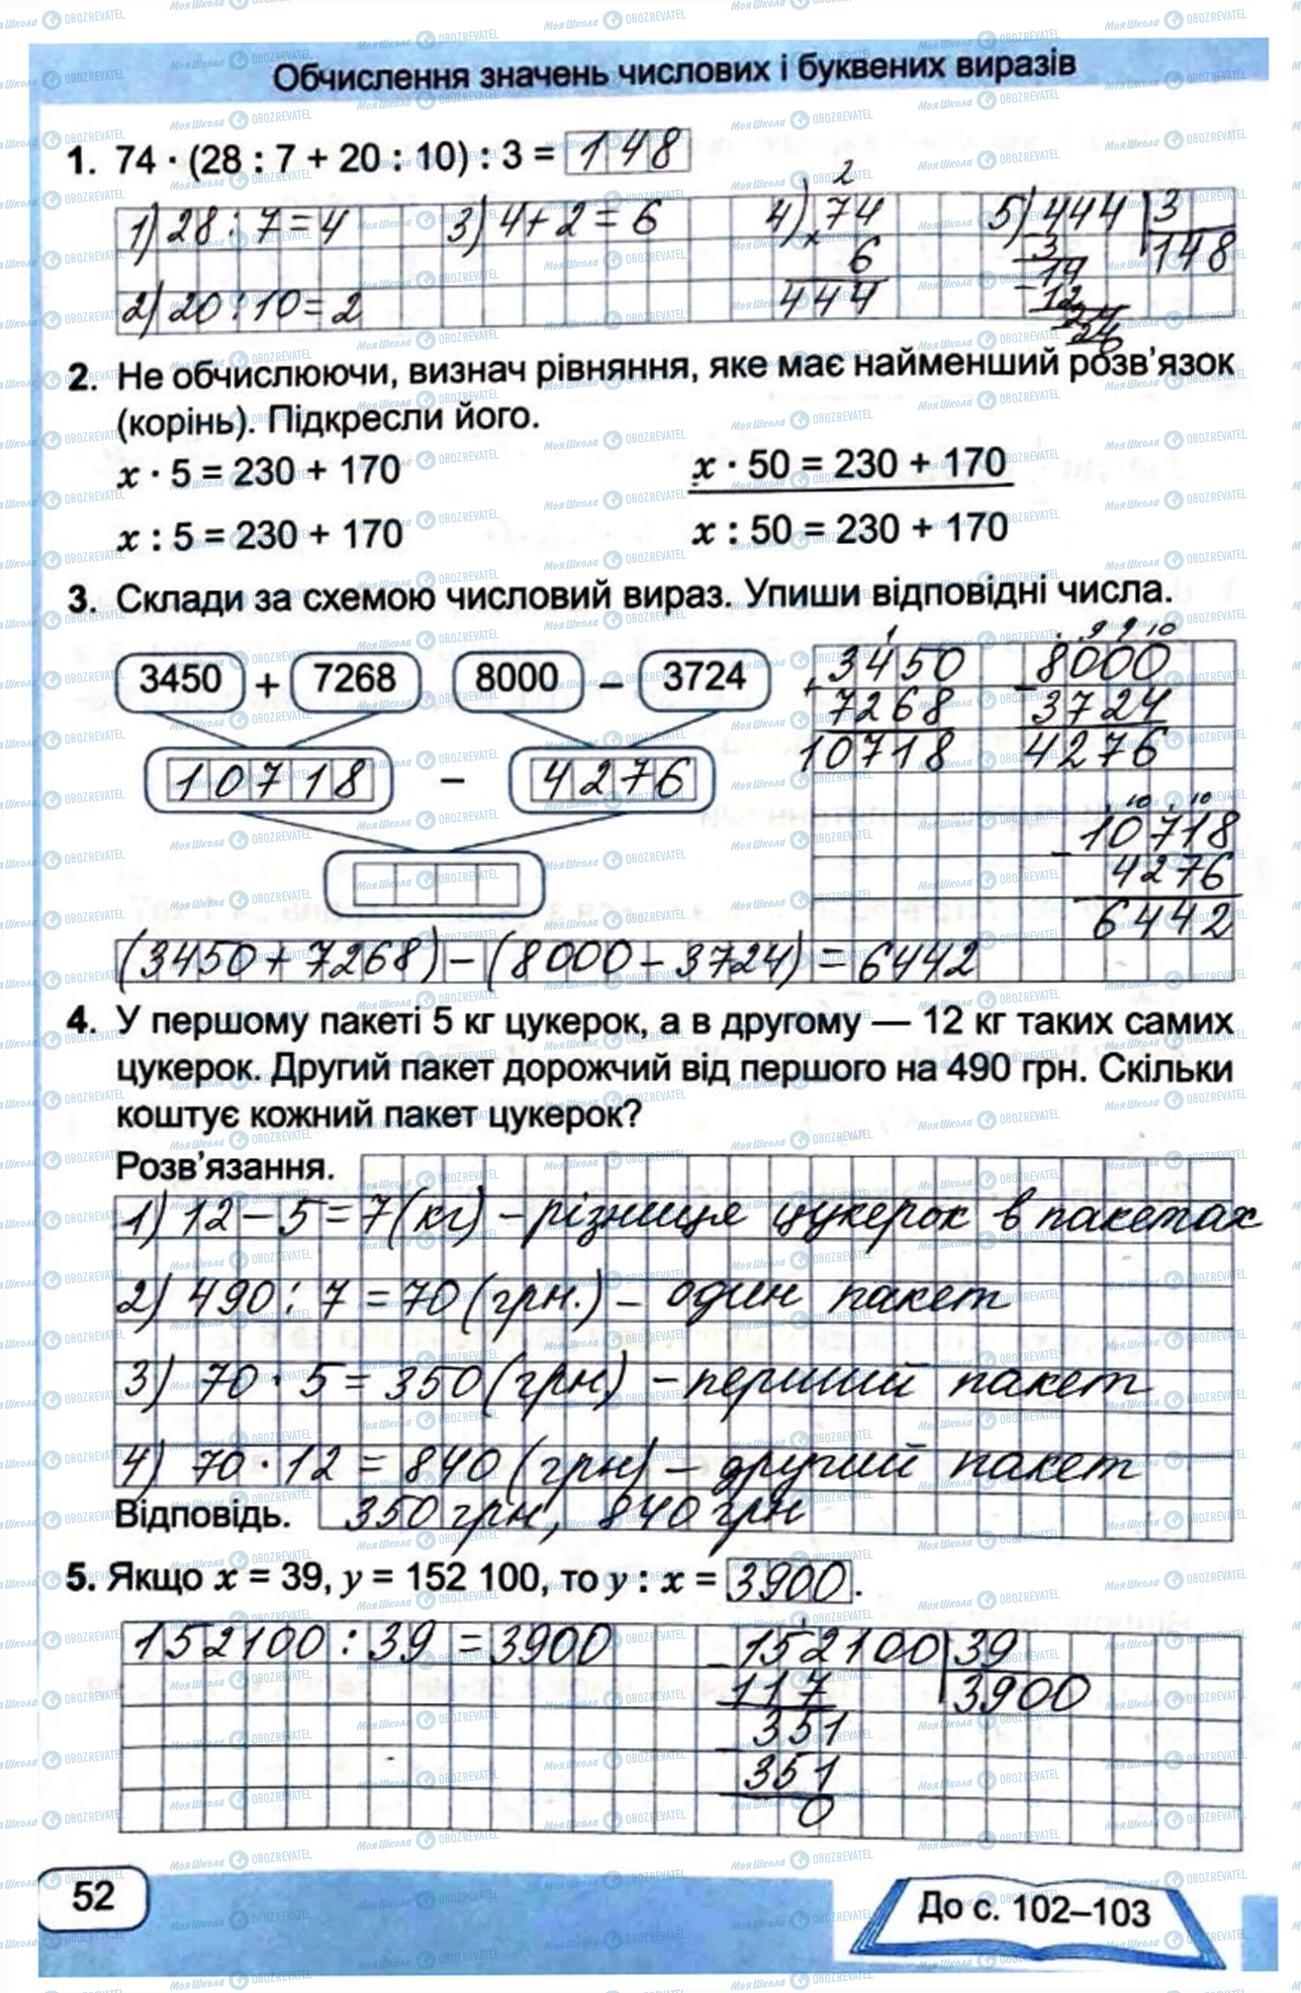 Обчислення значень числових і буквених виразів
1. 74 · (28 : 7 + 20 : 10) : 3 = 148
1) 28 : 7 = 4
3) 4 + 2 = 6
2) 20 : 10 = 2
4) 2
× 74
6
444
5) 444 | 3
- 3 | 148
14
- 12
24
24
0
2. Не обчислюючи, визнач рівняння, яке має найменший розв'язок
(корінь). Підкресли його.
x · 5 = 230 + 170
x · 50 = 230 + 170
x : 5 = 230 + 170
x : 50 = 230 + 170
3. Склади за схемою числовий вираз. Упиши відповідні числа.
3450 + 7268 8000 – 3724
10718 – 4276
1
+ 3450
7268
10718
. 9 9 10
- 8000
3724
4276
10 . 10
- 10718
4276
6442
(3450 + 7268) – (8000 – 3724) = 6442
4. У першому пакеті 5 кг цукерок, а в другому — 12 кг таких самих
цукерок. Другий пакет дорожчий від першого на 490 грн. Скільки
коштує кожний пакет цукерок?
Розв'язання.
1) 12 – 5 = 7 (кг) – різниця цукерок в пакетах
2) 490 : 7 = 70 (грн.) – один пакет
3) 70 · 5 = 350 (грн) – перший пакет
4) 70 · 12 = 840 (грн) – другий пакет
Відповідь. 350 грн, 840 грн
5. Якщо x = 39, y = 152 100, то y : x = 3900.
152100 : 39 = 3900
- 152100 | 39
117 | 3900
351
- 351
0
52
До с. 102–103
МояШкола OBOZREVATEL